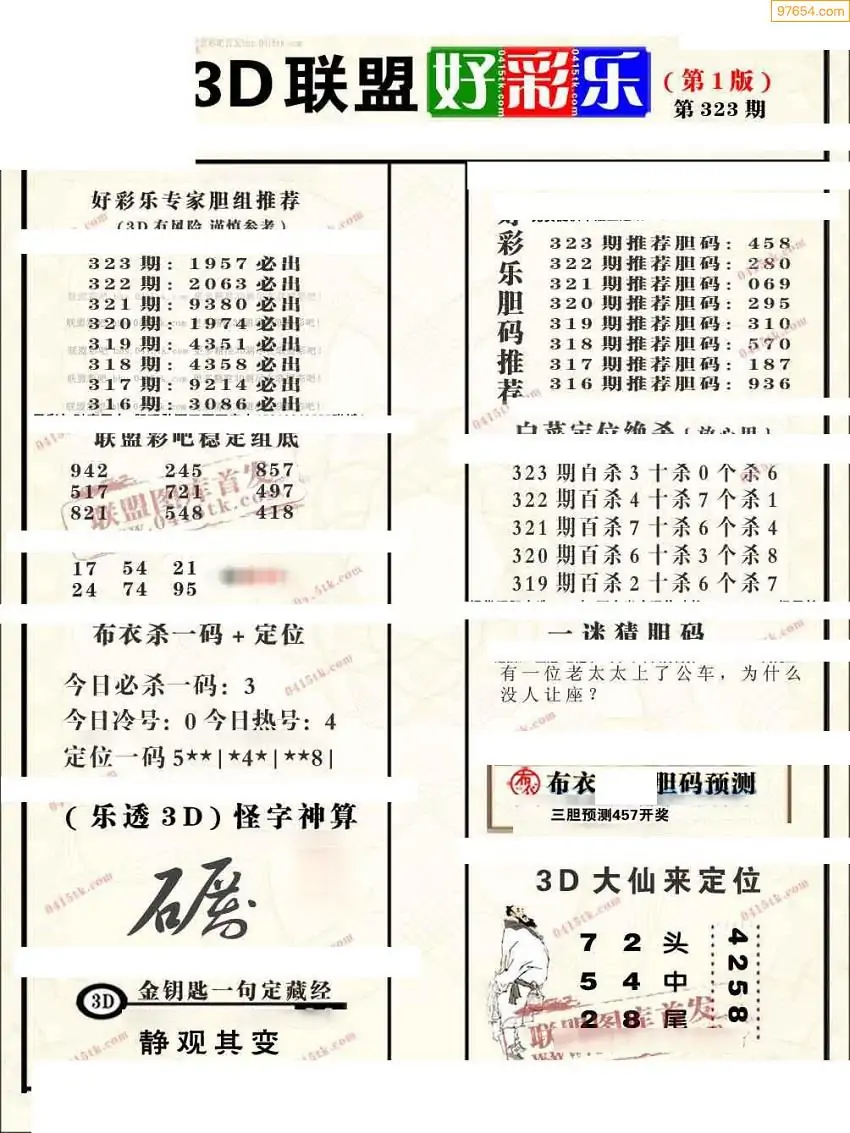 97654.com
3D联盟好彩乐
(第1版)
第323期
好彩乐专家胆组推荐
(3D有风险 谨慎参考)
323期:1957必出
322期:2063必出
321期:9380必出
320期:1974必出
319期:4351必出
318期:4358必出
317期:9214必出
316期:3086必出
联盟彩吧稳定组底
942 245 857
517 721 497
821 548 418
17 54 21
24 74 95
布衣杀一码+定位
今日必杀一码:3
今日冷号:0 今日热号:4
定位一码 5**|*4*|**8|
(乐透3D)怪字神算
3D 金钥匙一句定藏经
静观其变
好彩乐胆码推荐
323期推荐胆码:458
322期推荐胆码:280
321期推荐胆码:069
320期推荐胆码:295
319期推荐胆码:310
318期推荐胆码:570
317期推荐胆码:187
316期推荐胆码:936
白菜定位绝杀(放心用)
323期百杀3十杀0个杀6
322期百杀4十杀7个杀1
321期百杀7十杀6个杀4
320期百杀6十杀3个杀8
319期百杀2十杀6个杀7
一迷猜胆码
有一位老太太上了公车,为什么
没人让座?
布衣 胆码预测
三胆预测457开奖
3D大仙来定位
7 2 头
5 4 中
2 8 尾
4258
联盟图库首发
www.0415tk.com
0415tk.com